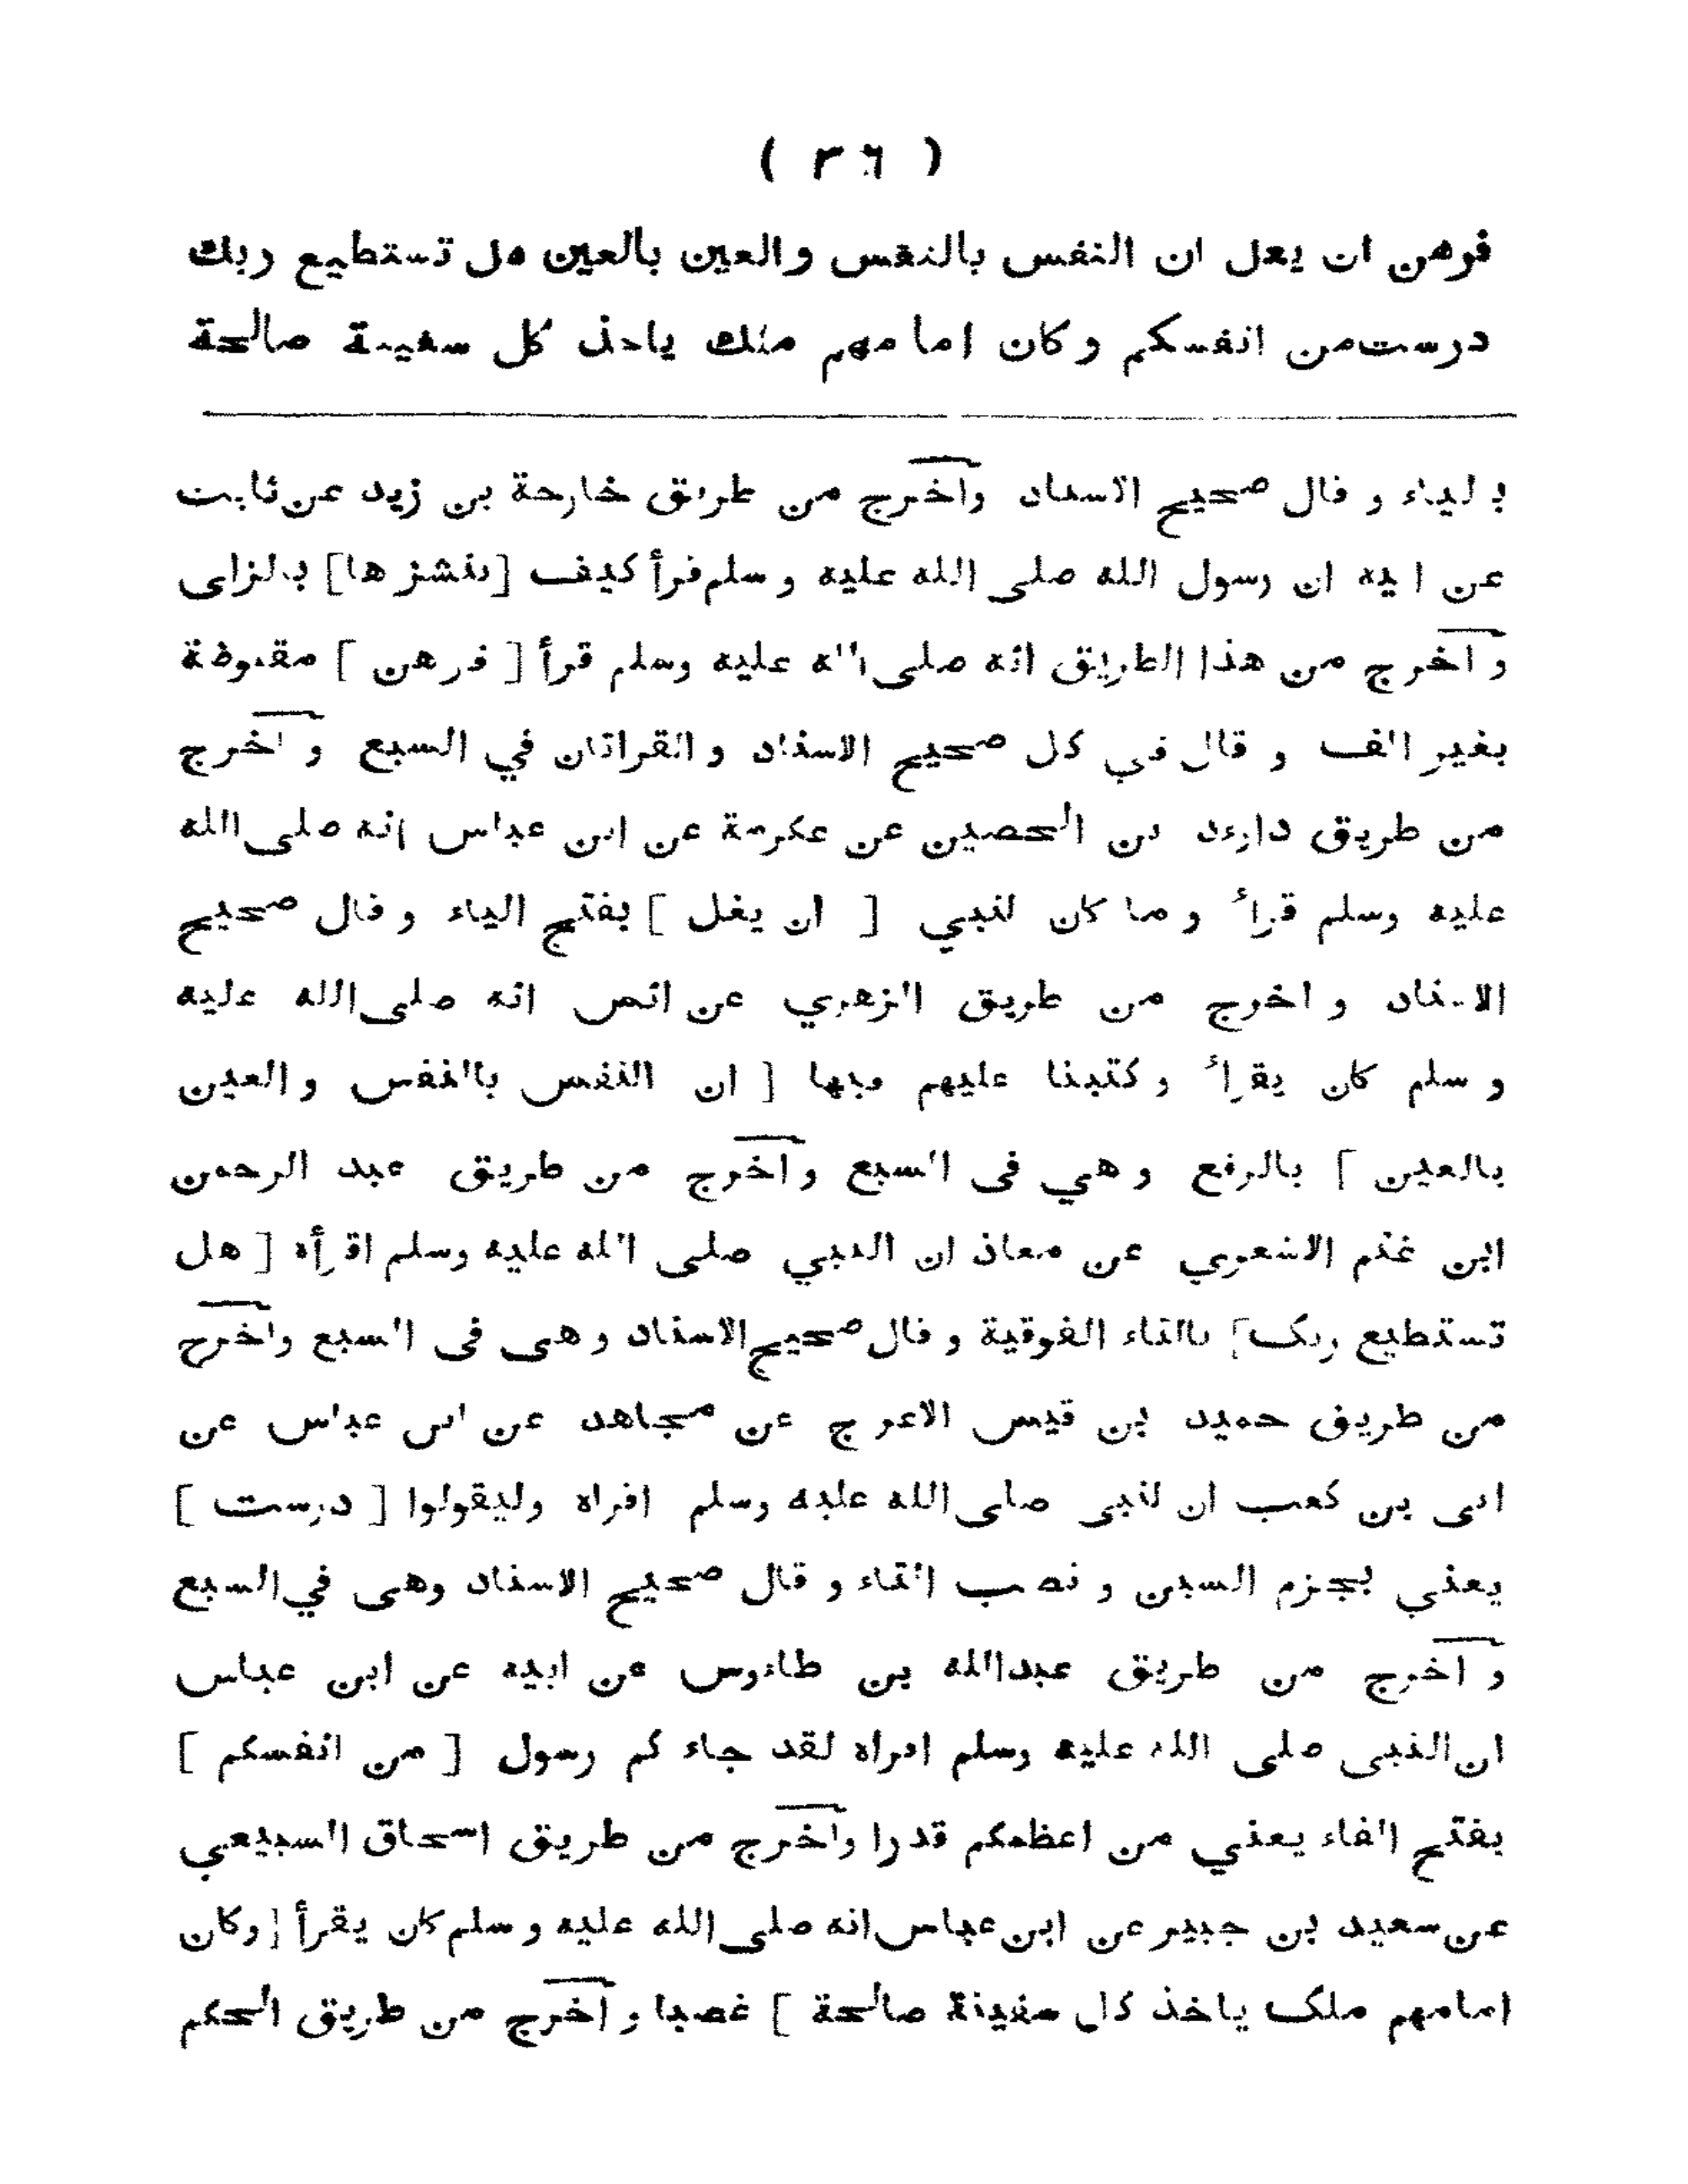 ( ٣٦ )
فرهن ان يغل ان النفس بالنفس والعين بالعين هل تستطيع ربك
درست من انفسكم وكان امامهم ملك ياخذ كل سفينة صالحة
بالياء و قال صحيح الاسناد واخرج من طريق خارجة بن زيد عن ثابت
عن ابيه ان رسول الله صلى الله عليه وسلم قرأ كيف [ننشزها] بالزاى
واخرج من هذا الطريق انه صلى الله عليه وسلم قرأ [ فرهن ] مقبوضة
بغير الف و قال في كل صحيح الاسناد والقراتان في السبع واخرج
من طريق داود بن الحصين عن عكرمة عن ابن عباس انه صلى الله
عليه وسلم قرأ وما كان لنبي [ ان يغل ] بفتح الياء وقال صحيح
الاسناد واخرج من طريق الزهري عن انس انه صلى الله عليه
وسلم كان يقرأ وكتبنا عليهم فيها [ ان النفس بالنفس والعين
بالعين ] بالرفع وهي فى السبع واخرج من طريق عبد الرحمن
ابن غنم الاشعري عن معاذ ان النبي صلى الله عليه وسلم اقرأه [ هل
تستطيع ربك] بالتاء الفوقية و قال صحيح الاسناد وهى فى السبع واخرج
من طريق حميد بن قيس الاعرج عن مجاهد عن ابن عباس عن
ابى بن كعب ان لنبى صلى الله عليه وسلم اقراه وليقولوا [ درست ]
يعني بجزم السين ونصب التاء و قال صحيح الاسناد وهى في السبع
واخرج من طريق عبدالله بن طاءوس عن ابيه عن ابن عباس
ان النبى صلى الله عليه وسلم اقراه لقد جاء كم رسول [ من انفسكم ]
بفتح الفاء يعني من اعظمكم قدرا واخرج من طريق اسحاق السبيعي
عن سعيد بن جبير عن ابن عباس انه صلى الله عليه وسلم كان يقرأ [وكان
امامهم ملك ياخذ كل سفينة صالحة ] غصبا واخرج من طريق الحكم